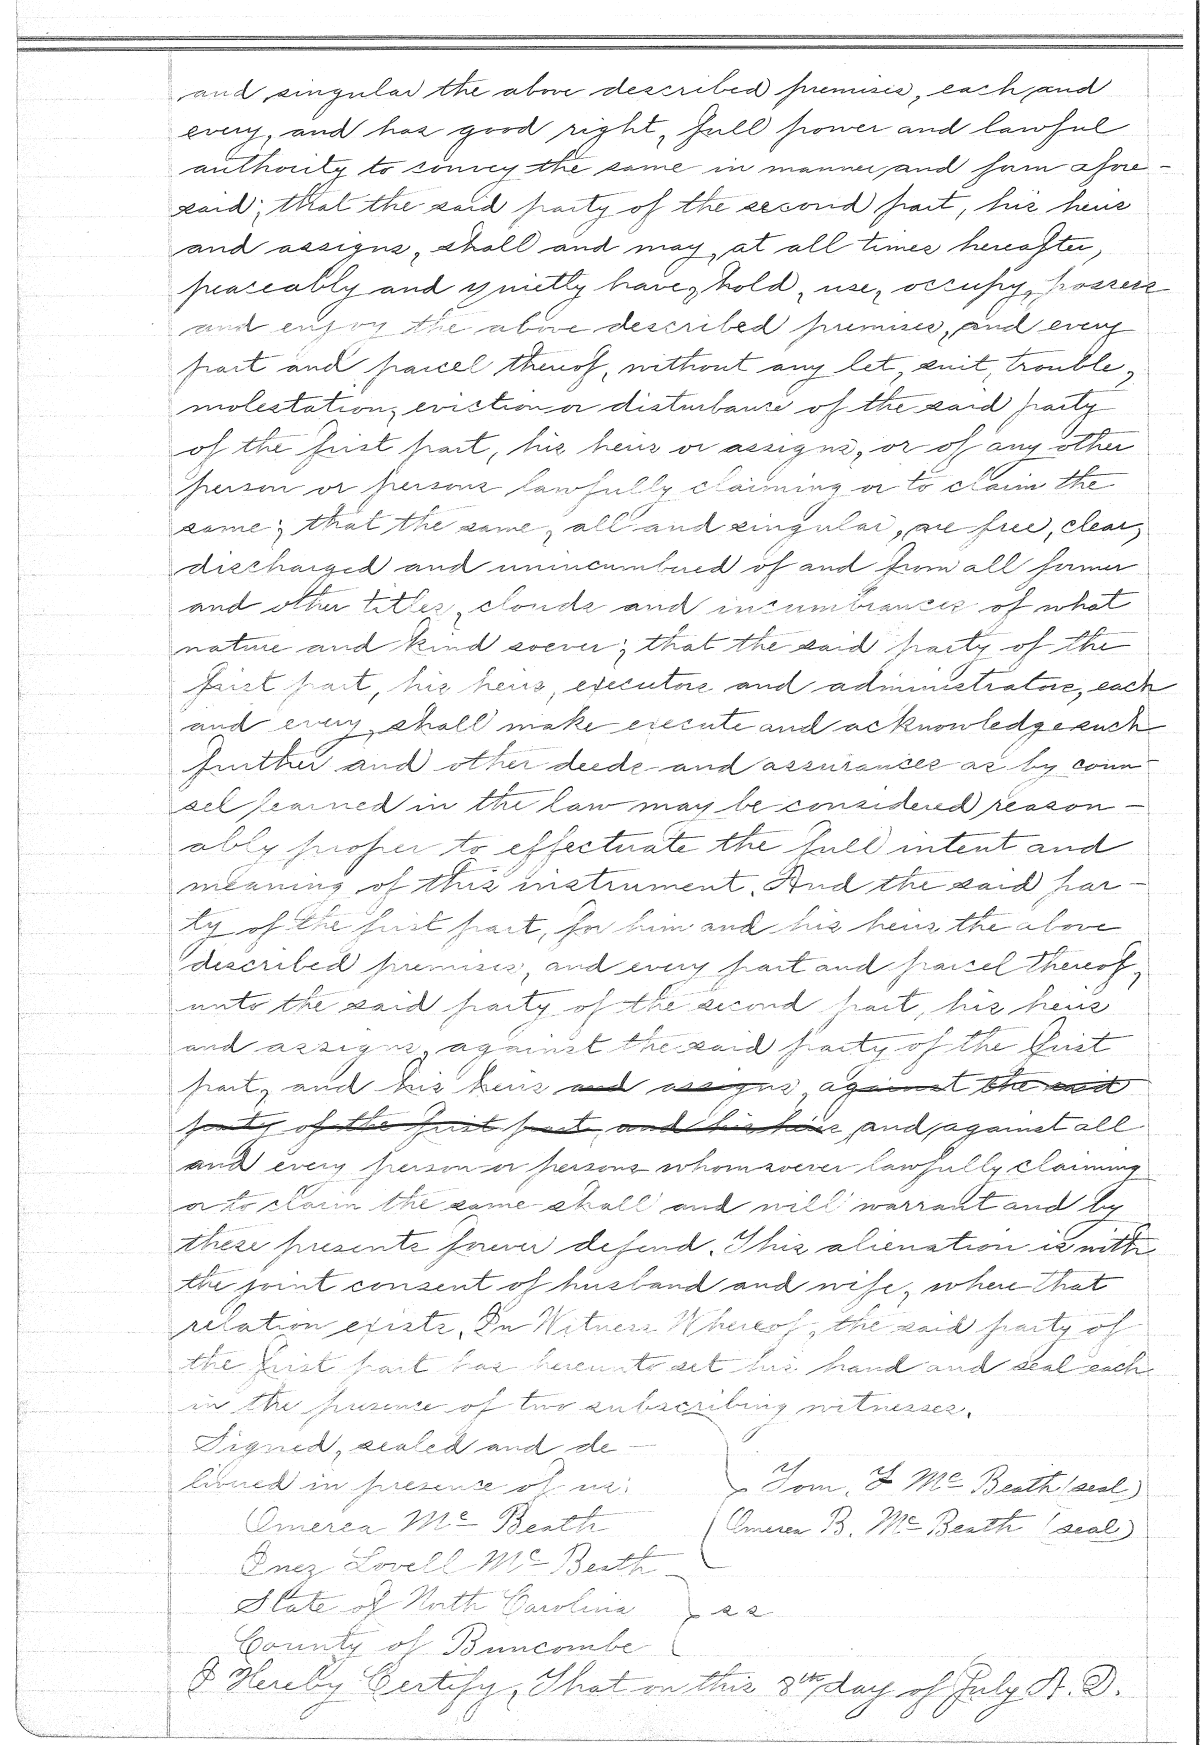 and singular the above described premises, each and
every, and has good right, full power and lawful
authority to convey the same in manner and form afore-
said; that the said party of the second part, his heirs
and assigns, shall and may, at all times hereafter,
peaceably and quietly have, hold, use, occupy, possess
and enjoy the above described premises, and every
part and parcel thereof, without any let, suit, trouble,
molestation, eviction or disturbance of the said party
of the first part, his heirs or assigns, or of any other
person or persons lawfully claiming or to claim the
same; that the same, all and singular, are free, clear,
discharged and unincumbered of and from all former
and other titles, clouds and incumbrances of what
nature and kind soever; that the said party of the
first part, his heirs, executors and administrators, each
and every, shall make execute and acknowledge such
further and other deeds and assurances as by coun-
sel learned in the law may be considered reason-
ably proper to effectuate the full intent and
meaning of this instrument. And the said par-
ty of the first part, for him and his heirs, the above
described premises, and every part and parcel thereof,
unto the said party of the second part, his heirs
and assigns, against the said party of the first
part, and his heirs and assigns, against the said
party of the first part, and his heirs, and against all
and every person or persons whomsoever lawfully claiming
or to claim the same shall and will warrant and by
these presents forever defend. This alienation is with
the joint consent of husband and wife, where that
relation exists. In Witness Whereof, the said party of
the first part has hereunto set his hand and seal each
in the presence of two subscribing witnesses.
Signed, sealed and de-
livered in presence of us:
Tom. F Mc Beath (seal)
Omerea Mc Beath
Omerea B. Mc Beath (seal)
Inez Lovell Mc Beath
State of North Carolina } ss
County of Buncombe
I Hereby Certify, That on this 8th day of July A. D.